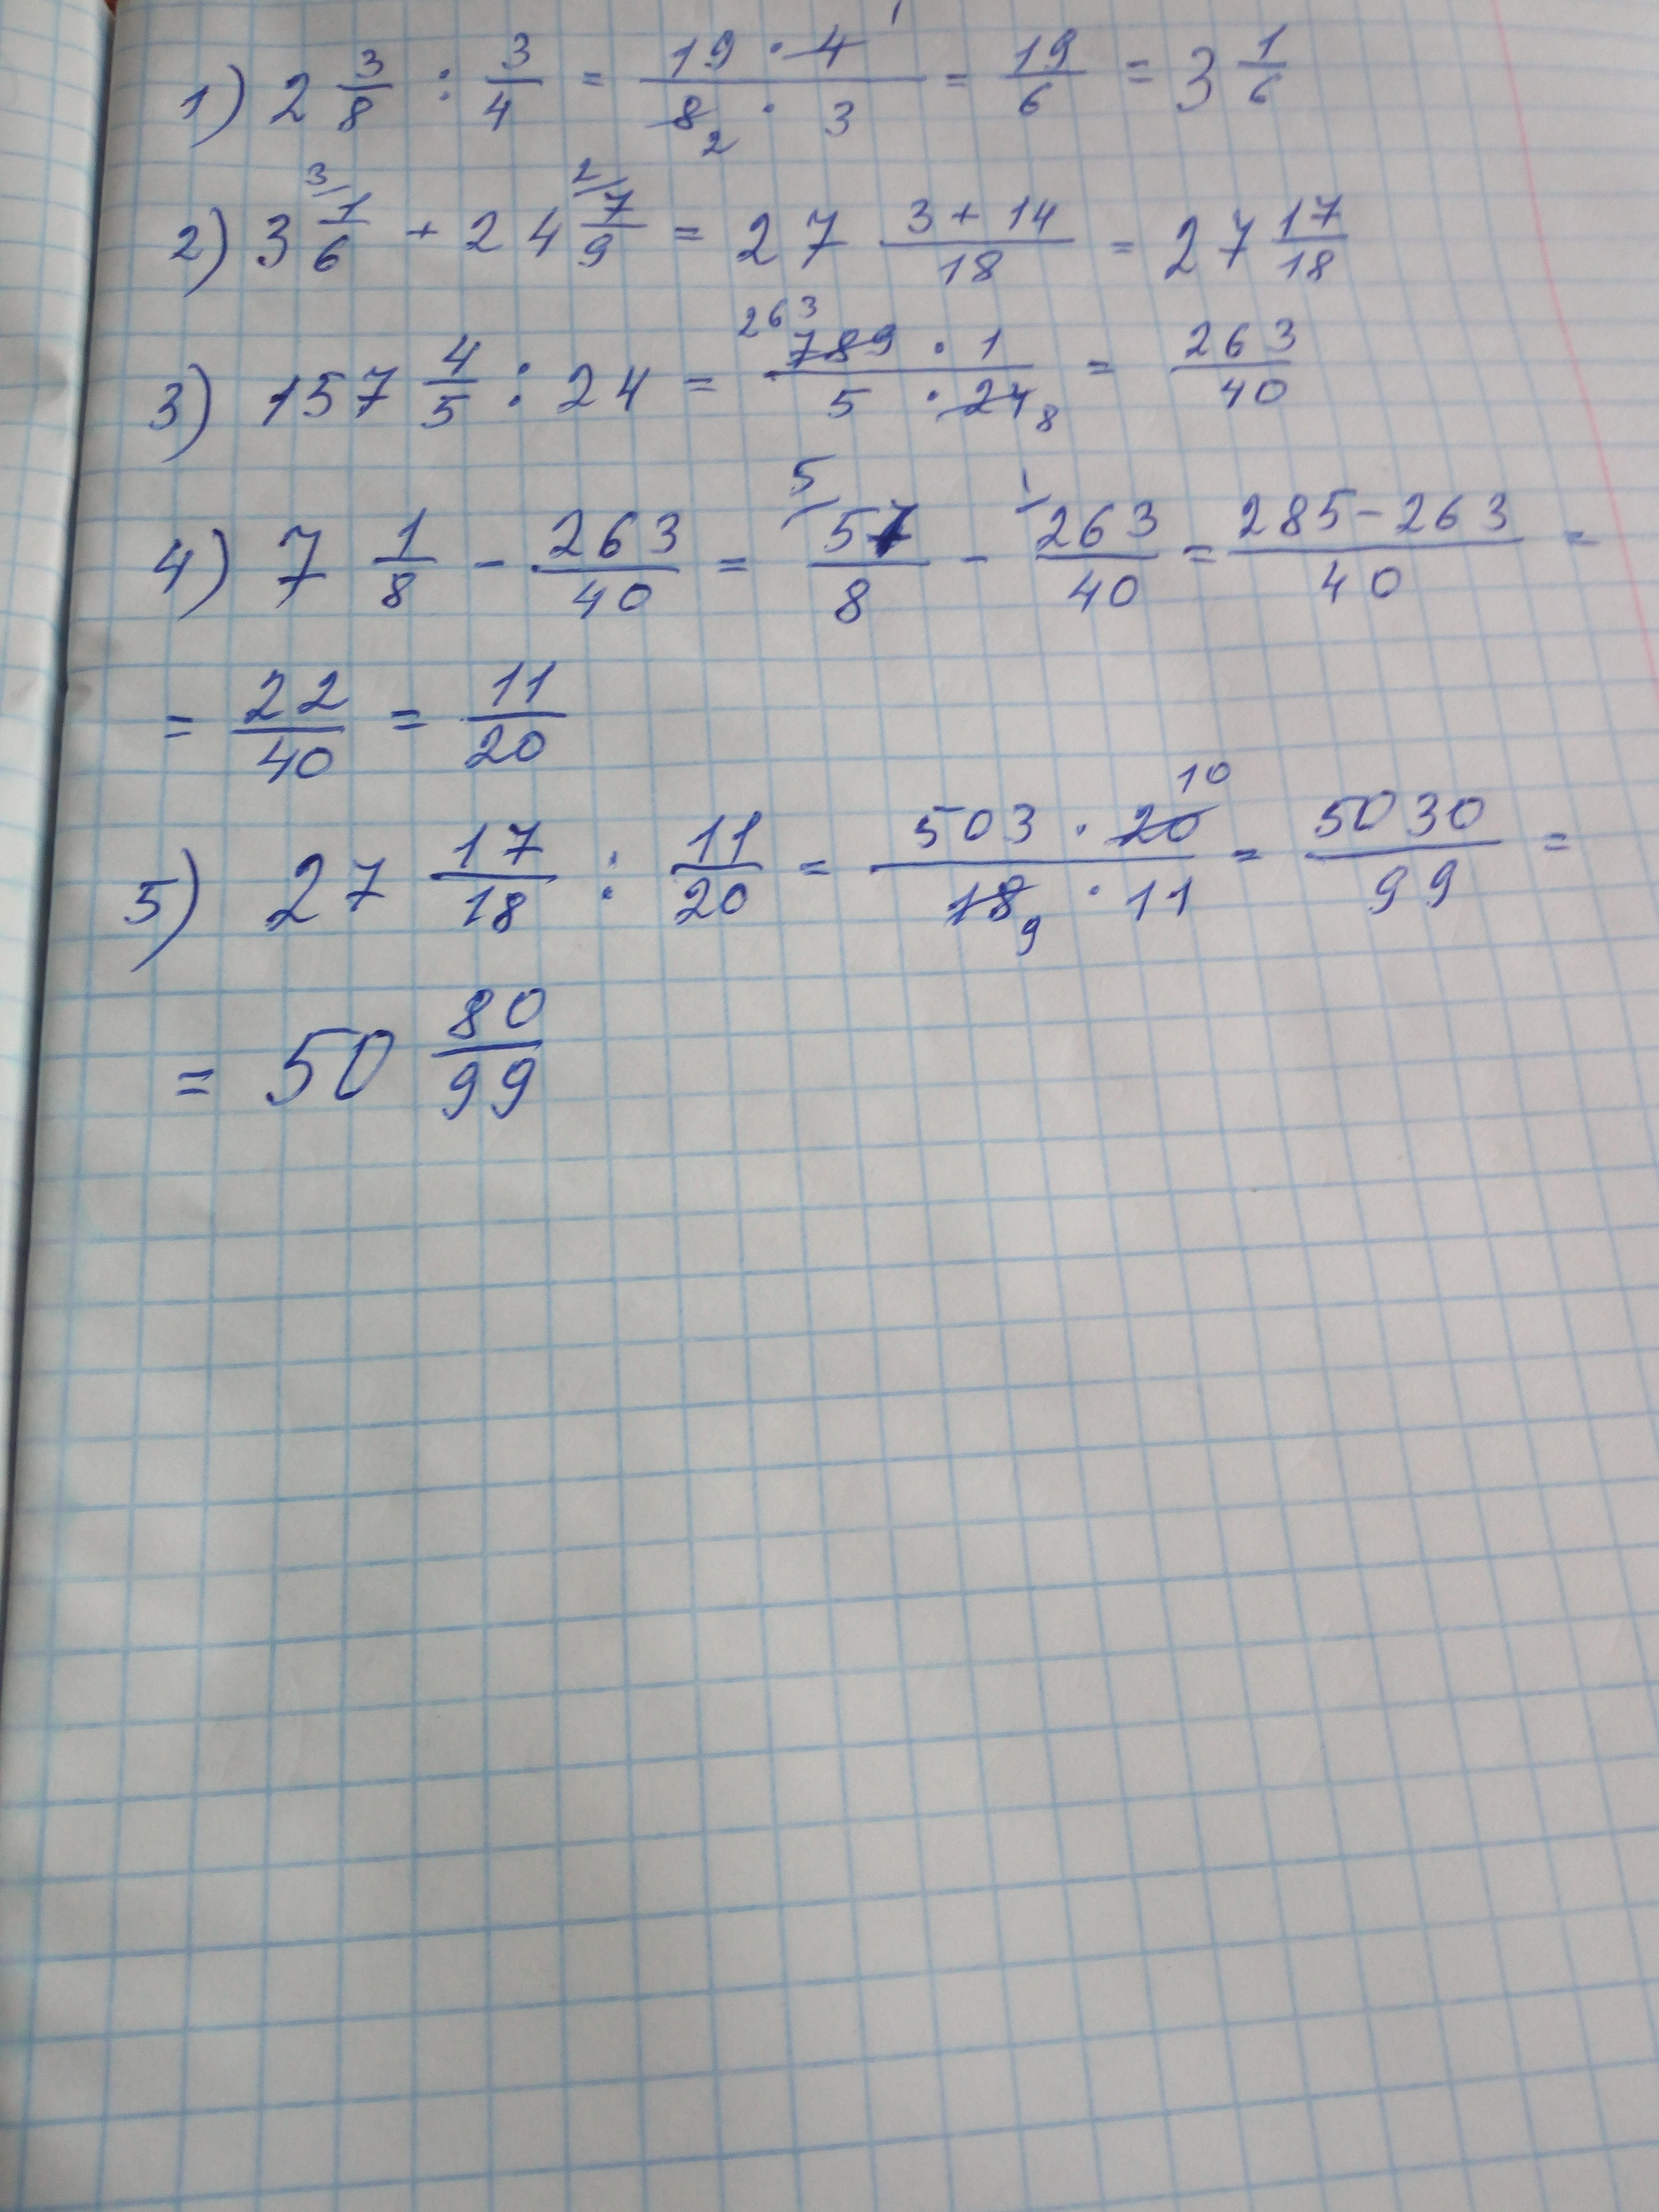 1) 2 3/8 : 3/4 = 19 · 4 1 / 8 2 · 3 = 19/6 = 3 1/6
2) 3 3/ 1/6 + 24 2/ 7/9 = 27 3 + 14 / 18 = 27 17/18
3) 157 4/5 : 24 = 263 789 · 1 / 5 · 24 8 = 263/40
4) 7 1/8 - 263/40 = 5/ 57/8 - 1/ 263/40 = 285 - 263 / 40 =
= 22/40 = 11/20
5) 27 17/18 : 11/20 = 503 · 20 10 / 18 9 · 11 = 5030/99 =
= 50 80/99